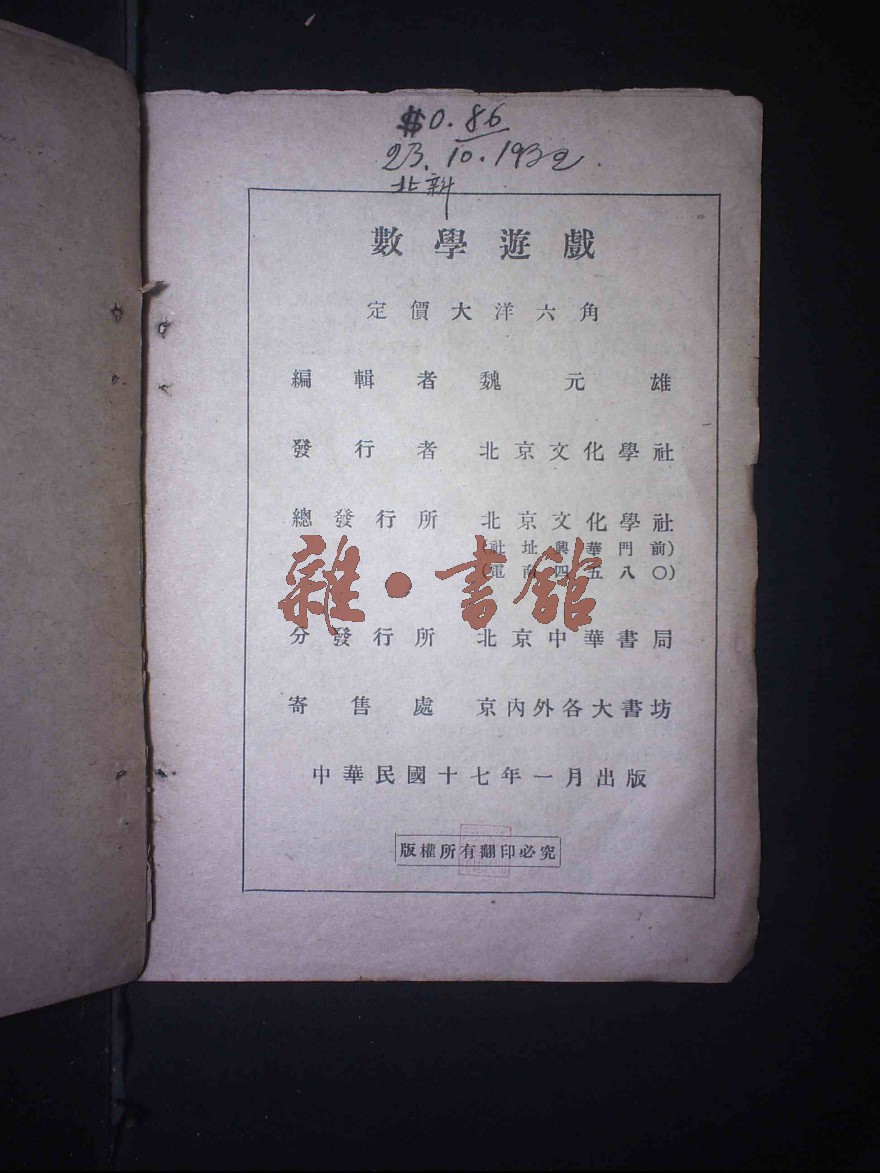 $0.86
23.10.1932.
北新
數學遊戲
定價大洋六角
編輯者 魏元雄
發行者 北京文化學社
總發行所 北京文化學社
(社址興華門前)
(電南四五八〇)
分發行所 北京中華書局
寄售處 京内外各大書坊
中華民國十七年一月出版
版權所有翻印必究
雜·書館